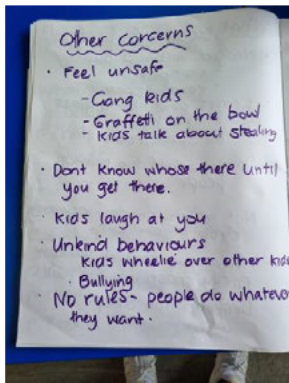 Other concerns
· Feel unsafe
- Gang kids
- Graffetti on the bowl
- Kids talk about stealing
· Dont know whose there until
you get there.
· Kids laugh at you
· Unkind behaviours
Kids wheelie over other kids
· Bullying
· No rules - people do whatever
they want.